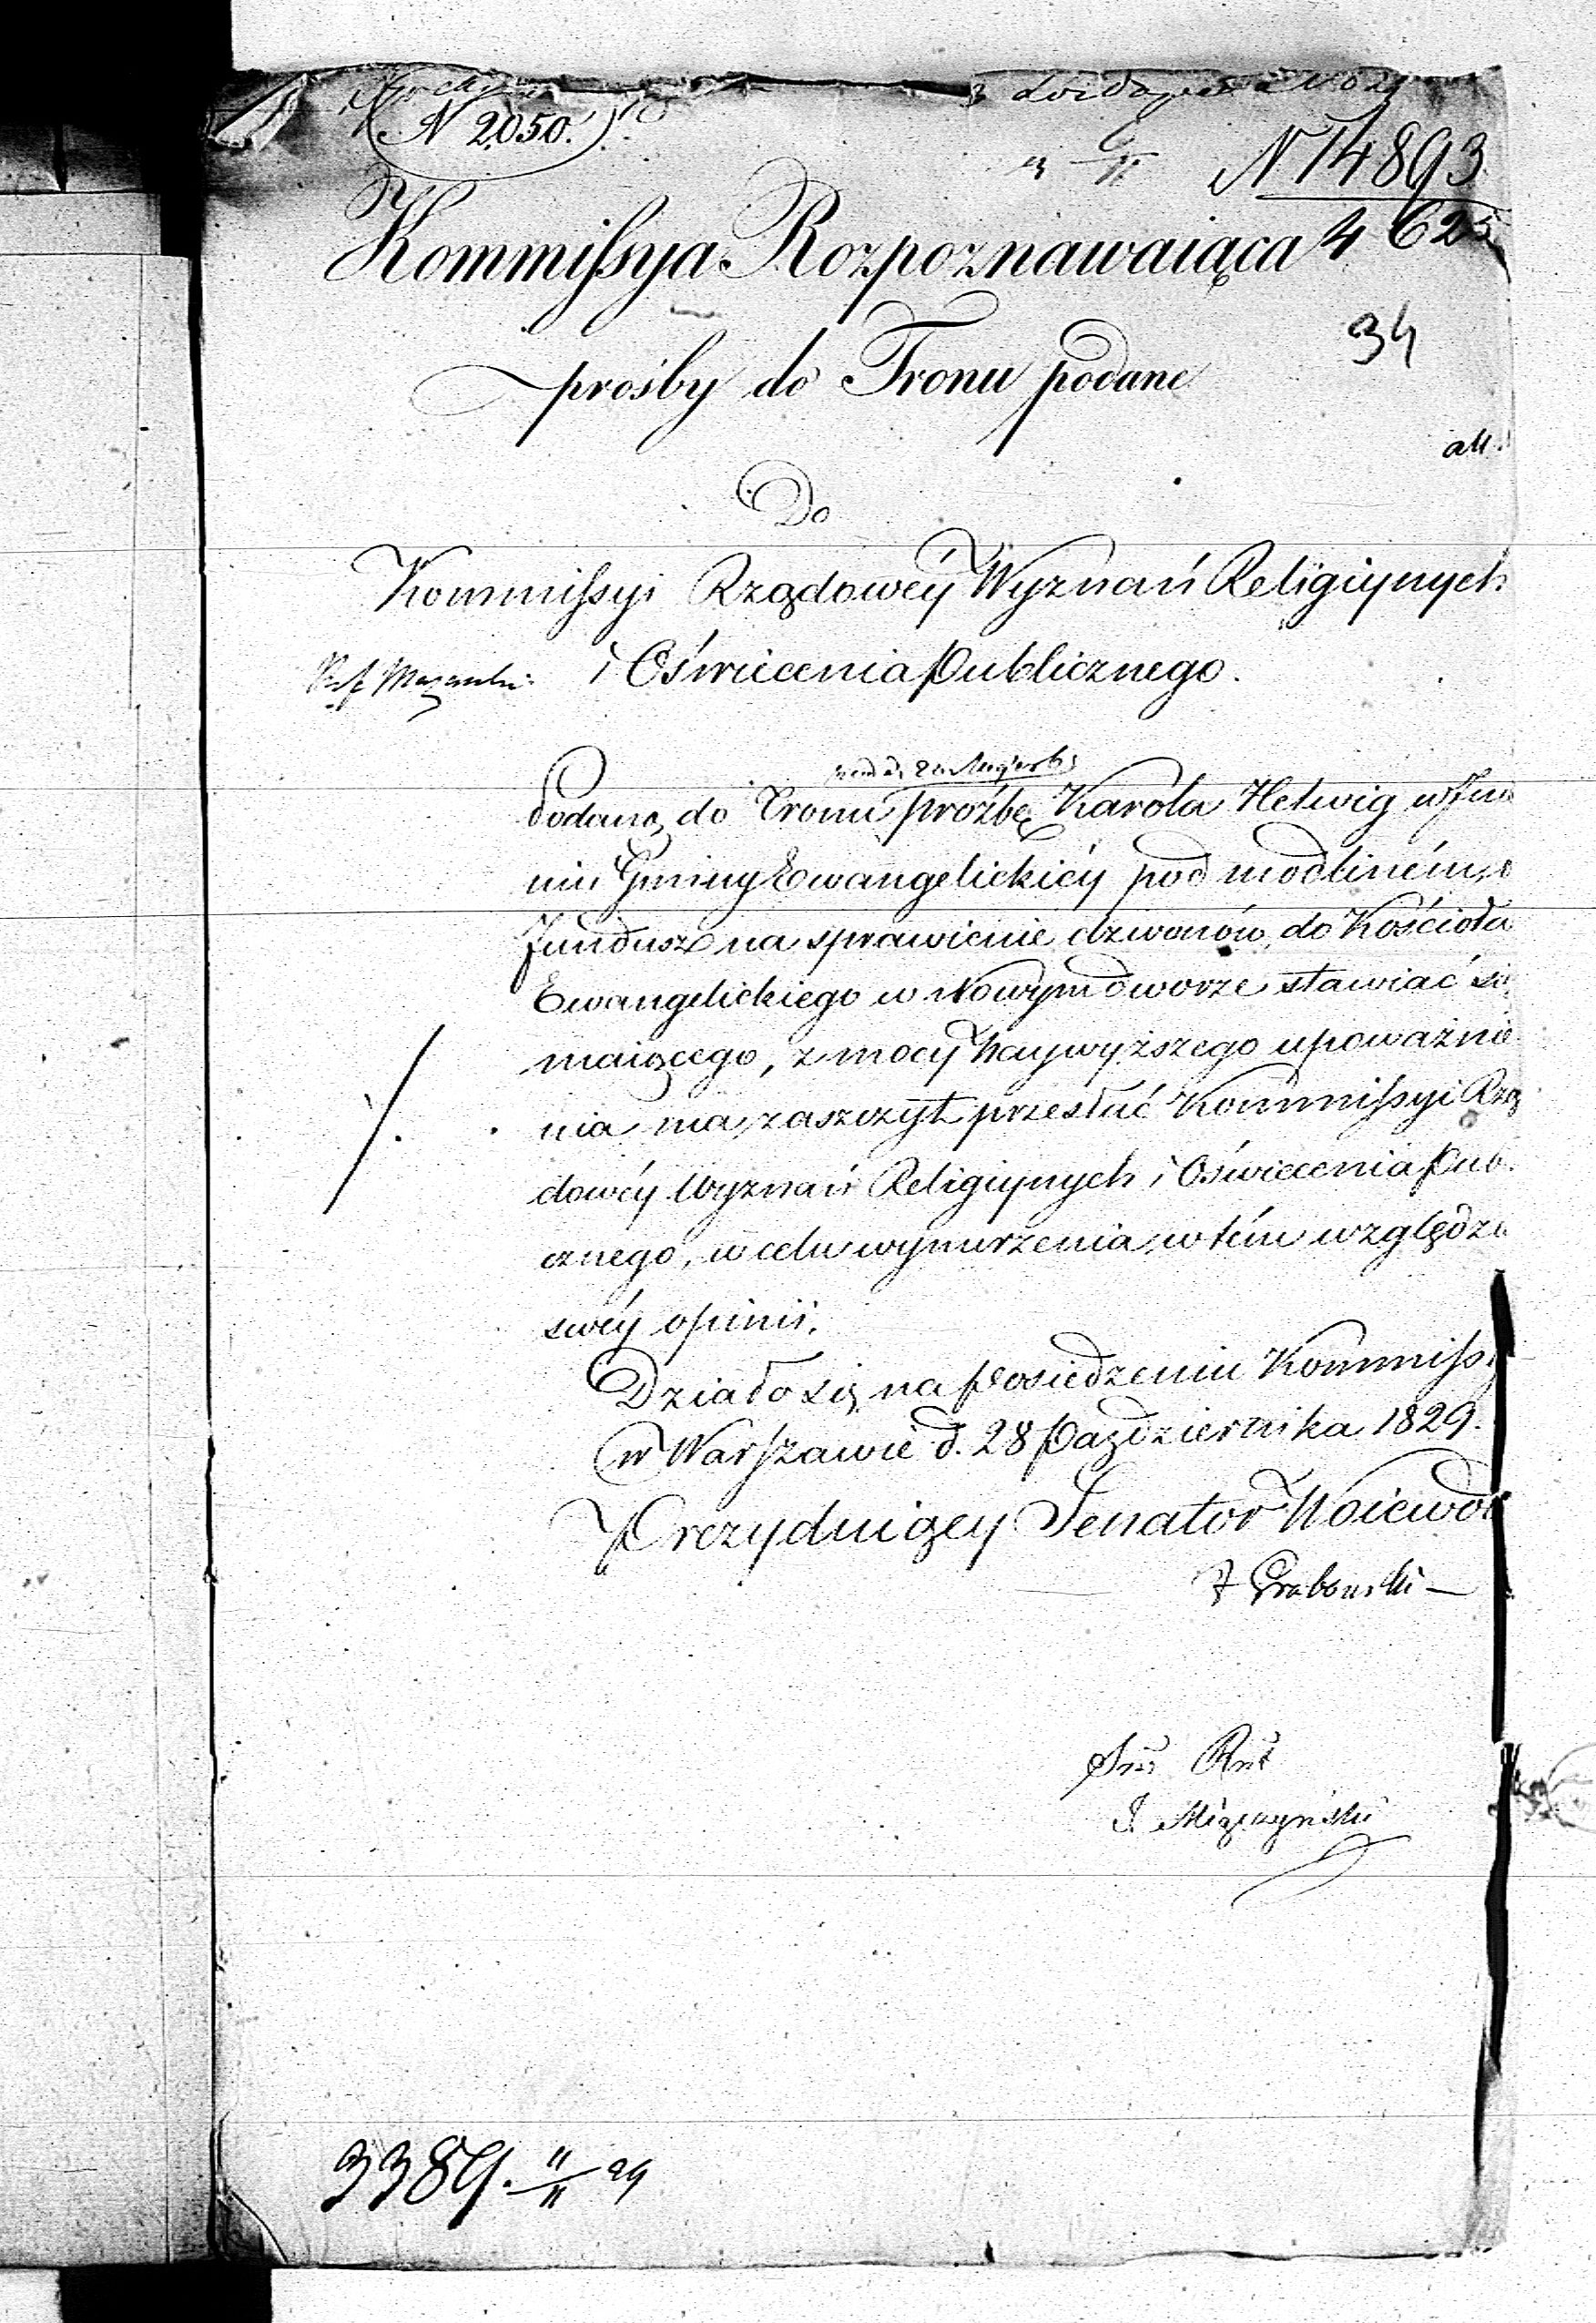 N 2050.
N 14893
4 625
Kommissya Rozpoznawaiąca
34
prośby do Tronu podane
all.
Do
Kommissyi Rządowéy Wyznań Religiynych
i Oświecenia Publicznego.
Podaną do Tronu proźbę Karola Helwig w Imie
niu Gminy Ewangelickiéy pod Modlinem, o
fundusz na sprawienie dzwonów do Kościoła
Ewangelickiego w Nowymdworze stawiać się
maiącego, z mocy Naywyższego upoważnie
nia ma zaszczyt przesłać Kommissyi Rzą
dowéy Wyznań Religiynych i Oświecenia Pub.
cznego, w celu wynurzenia w tém względzie
swéy opinii.
Działo się na Posiedzeniu Kommiss
w Warszawie d. 28 Października 1829.
Prezyduiący Senator Woiewod
F Grabowski
J. Miączyński
3389. 11/11 29